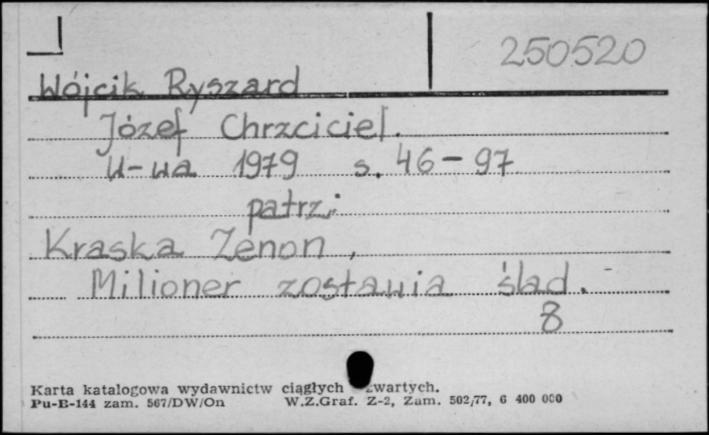 250520
Wójcik Ryszard
Józef Chrzciciel.
W-wa 1979 s. 46-97
patrz:
Kraska Zenon,
Milioner zostawia ślad.
8
Karta katalogowa wydawnictw ciągłych zwartych.
Pu-B-144 zam. 567/DW/On W.Z.Graf. Z-2, Zam. 502/77, 6 400 000